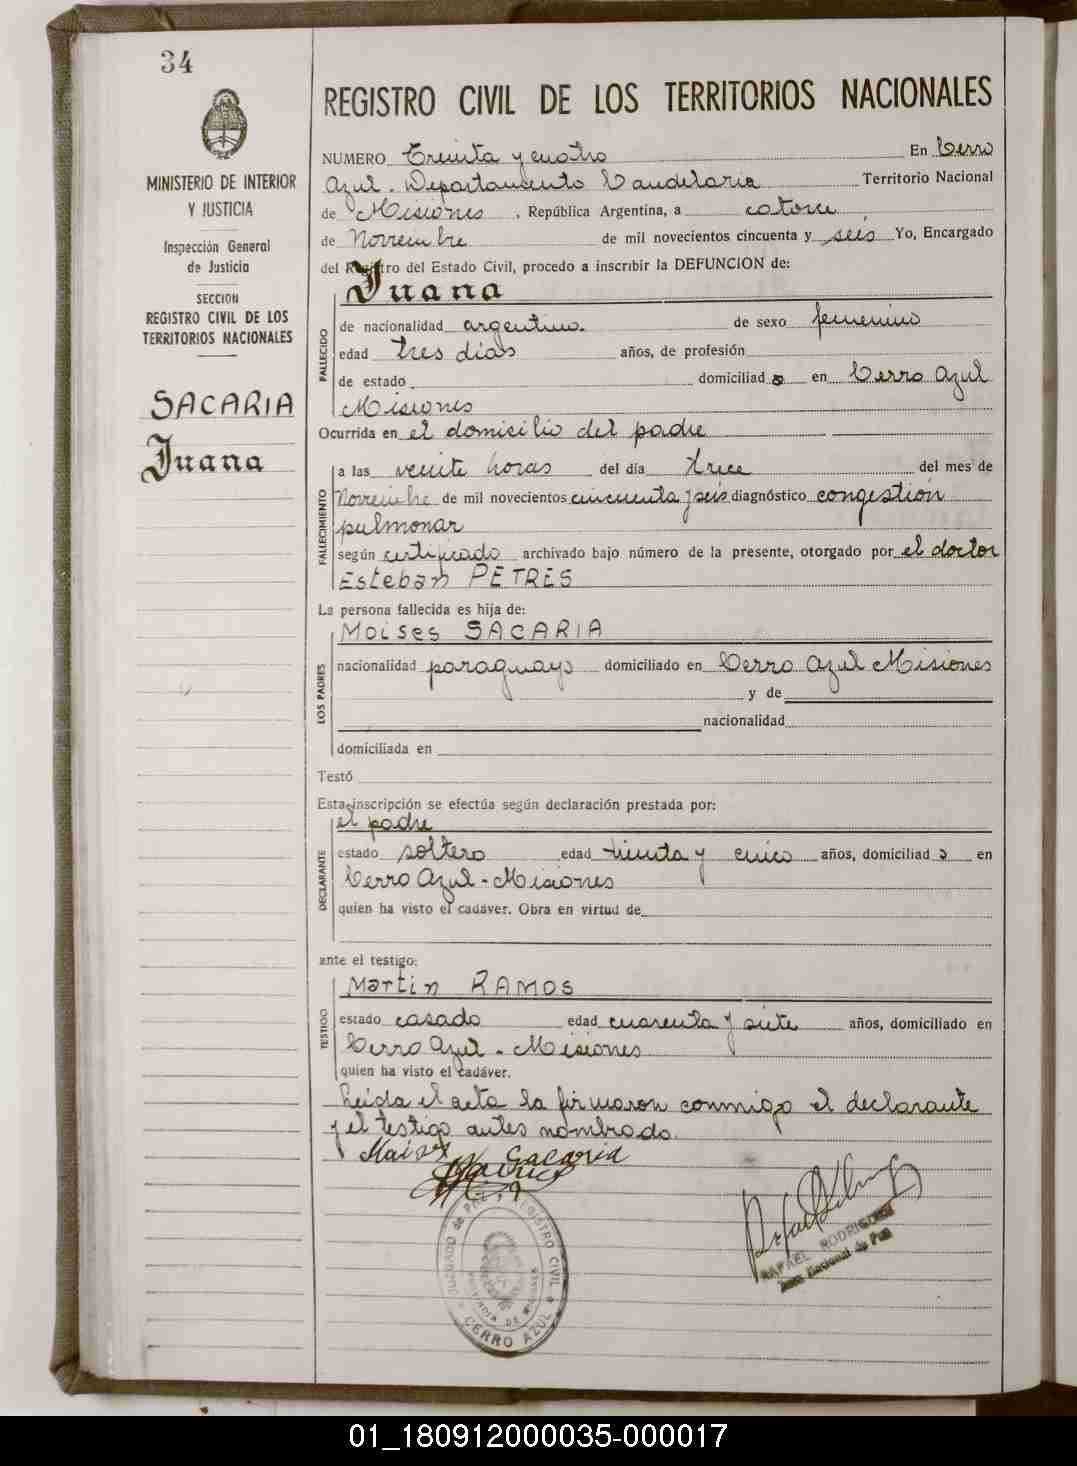 34
MINISTERIO DE INTERIOR
Y JUSTICIA
Inspección General
de Justicia
SECCION
REGISTRO CIVIL DE LOS
TERRITORIOS NACIONALES
SACARIA
Juana
REGISTRO CIVIL DE LOS TERRITORIOS NACIONALES
NUMERO Treinta y cuatro En Cerro
Azul. Departamento Candelaria Territorio Nacional
de Misiones, República Argentina, a catorce
de Noviembre de mil novecientos cincuenta y seis Yo, Encargado
del Registro del Estado Civil, procedo a inscribir la DEFUNCION de:
Juana
FALLECIDO
de nacionalidad argentino. de sexo femenino
edad tres días años, de profesión
de estado domiciliado en Cerro Azul
Misiones
Ocurrida en el domicilio del padre
FALLECIMIENTO
a las veinte horas del día trece del mes de
Noviembre de mil novecientos cincuenta y seis diagnóstico congestión
pulmonar
según certificado archivado bajo número de la presente, otorgado por el doctor
Esteban PETRES
La persona fallecida es hija de:
LOS PADRES
Moises SACARIA
nacionalidad paraguayo domiciliado en Cerro Azul Misiones
y de
nacionalidad
domiciliada en
Testó
Esta inscripción se efectúa según declaración prestada por:
DECLARANTE
el padre
estado soltero edad treinta y cinco años, domiciliado en
Cerro Azul - Misiones
quien ha visto el cadáver. Obra en virtud de
ante el testigo:
TESTIGO
Martin RAMOS
estado casado edad cuarenta y siete años, domiciliado en
Cerro Azul. - Misiones
quien ha visto el cadáver.
Leida el acta la firmaron conmigo el declarante
y el testigo antes nombrado.
Sacaria
JUZGADO de PAZ y REGISTRO CIVIL
PROVINCIA DE MISIONES
CERRO AZUL
RAFAEL RODRIGUEZ
Juez Nacional de Paz
01_180912000035-000017